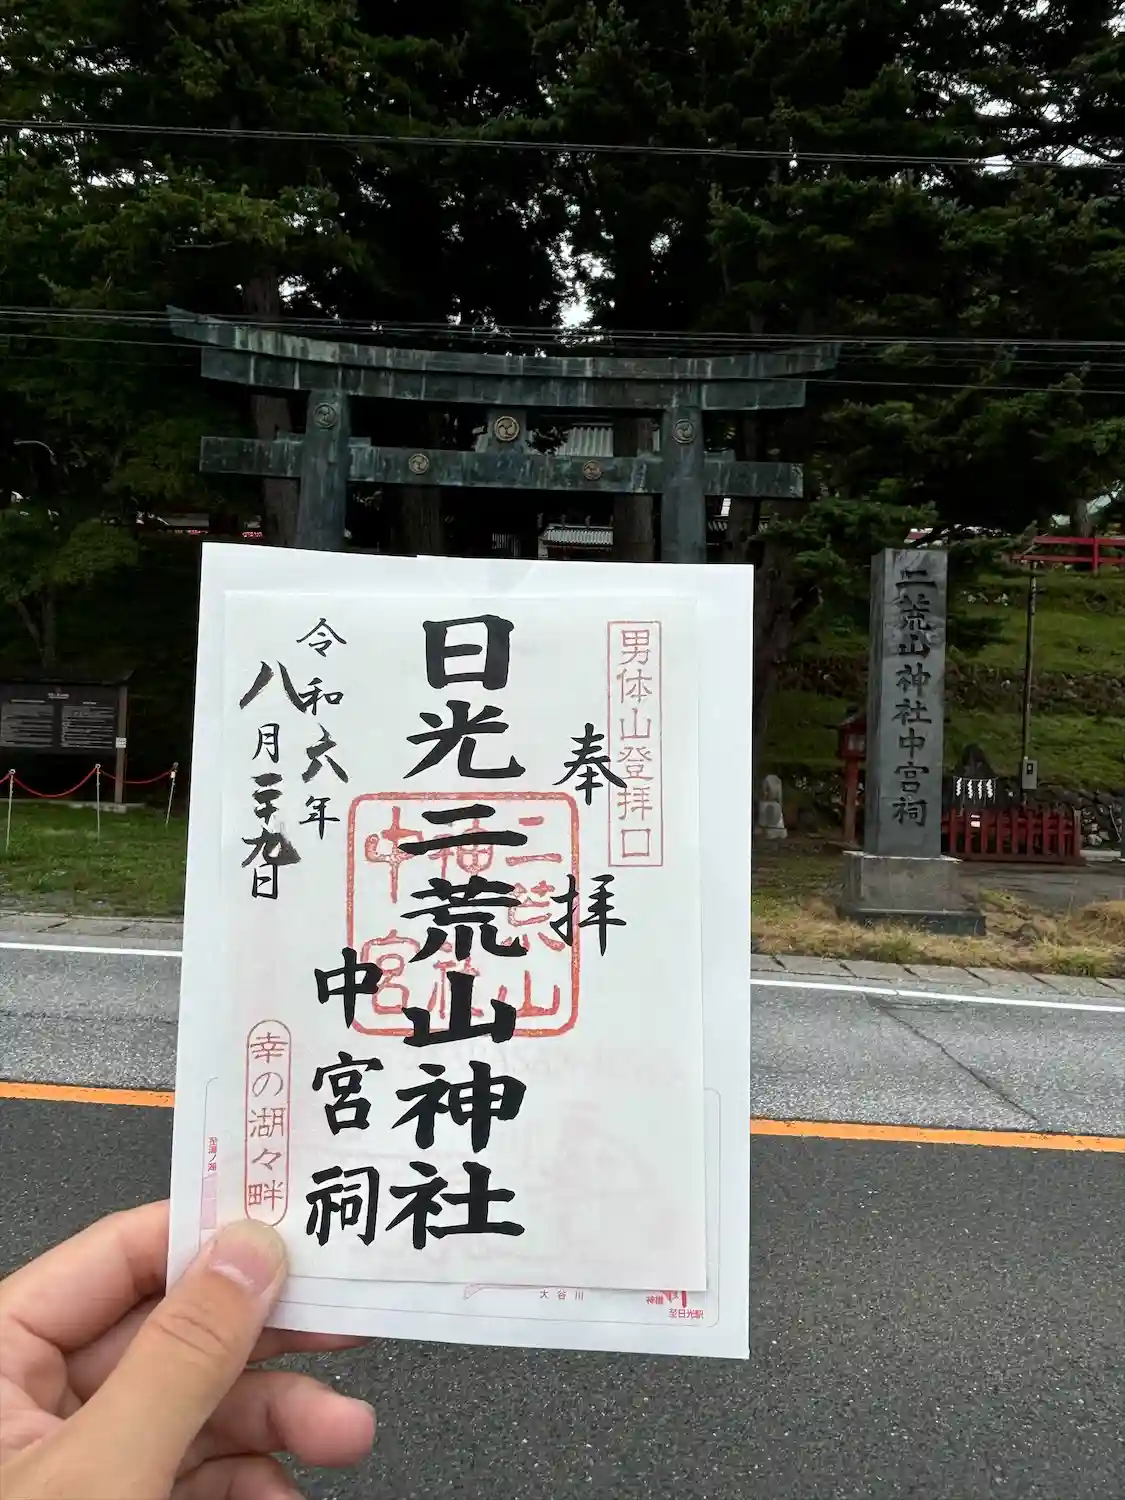 男体山登拝口
奉拝
日光二荒山神社
中宮祠
二荒山
神社
中宮
令和六年
八月二十九日
幸の湖々畔
至湯ノ湖
大谷川
神橋
至日光駅
二荒山神社中宮祠